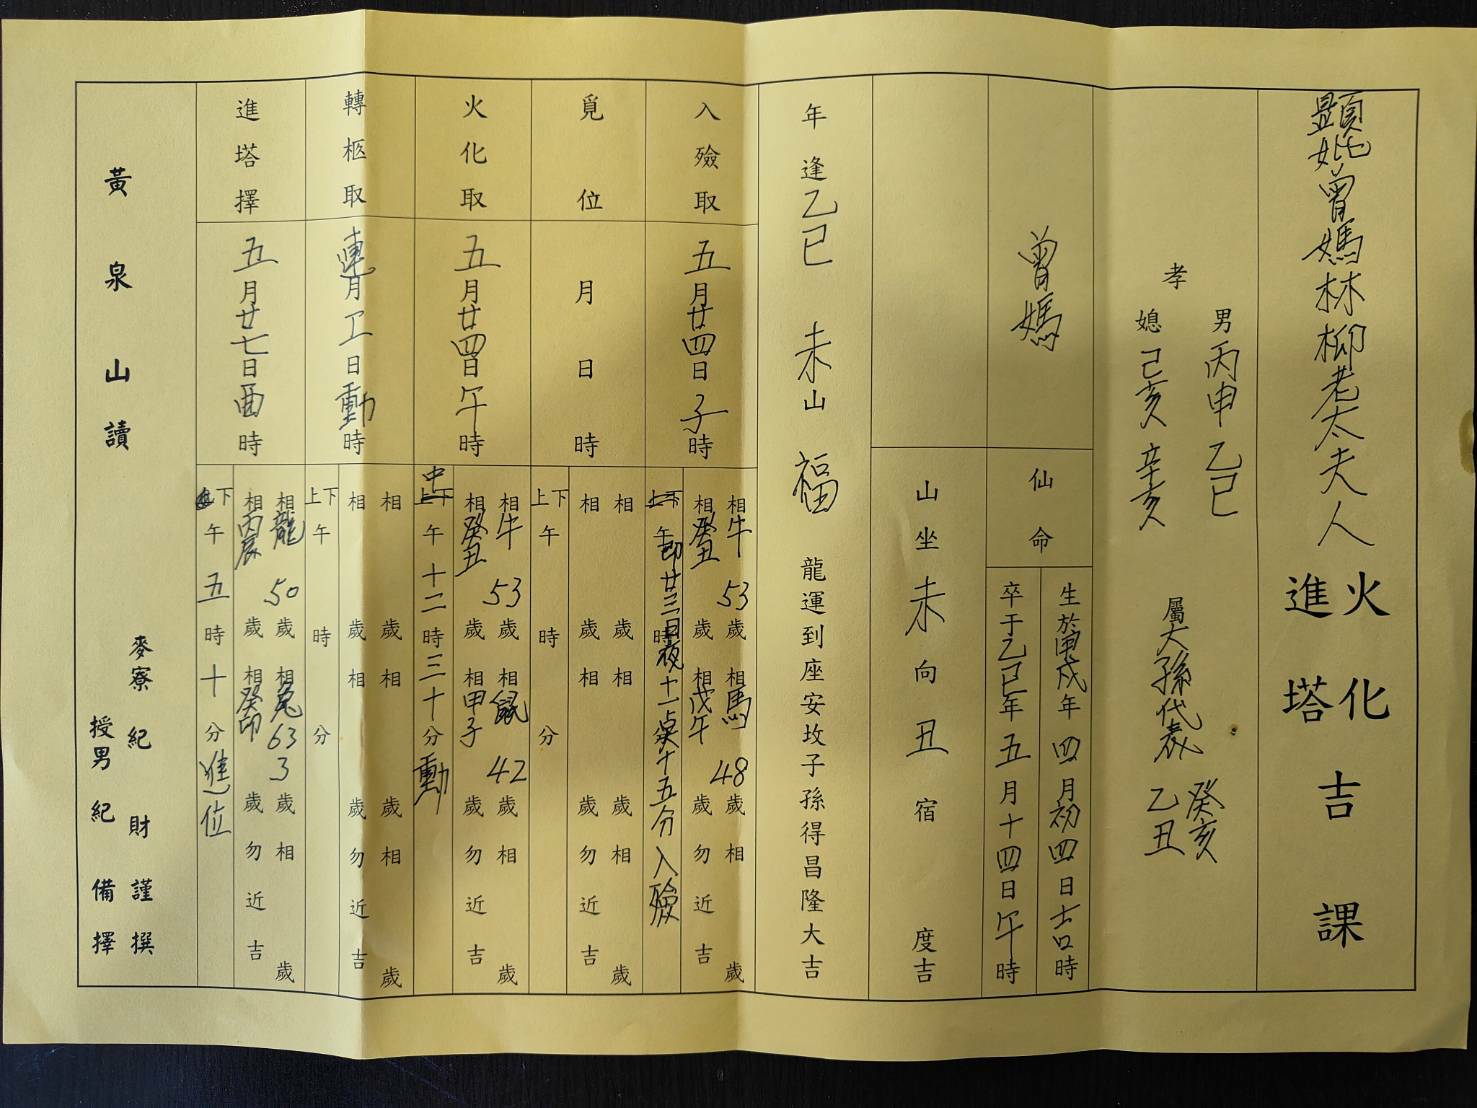 顯妣曾媽林柳老太夫人 火化進塔 吉課
孝
男 丙申 乙巳
媳 己亥 辛亥
屬 大孫代裁 癸亥 乙丑
曾媽
仙命
生於甲戌年四月初四日吉時
卒于乙巳年五月十四日午時
山坐未向丑宿 度吉
年逢乙巳 未山 福 龍運到座安坟子孫得昌隆大吉
入殮取
五月廿四日子時
相牛 53歲 相馬 48歲 相 歲
相癸丑 歲 相戊午 歲 勿近吉
上下午 即廿三日夜 時 十一点 十五分入殮
覓位
月 日 時
相 歲 相 歲 相
相 歲 相 歲 勿近吉
上下午 時 分
火化取
五月廿四日午時
相牛 53歲 相鼠 42歲 相 歲
相癸丑 歲 相甲子 歲 勿近吉
中午十二時三十分動
轉柩取
連月工日動時
相 歲 相 歲 相 歲
相 歲 相 歲 勿近吉
上下午 時 分
進塔擇
五月廿七日酉時
相龍 50歲 相兔 63 3歲 相 歲
相丙辰 歲 相癸卯 歲 勿近吉
下午五時十分進位
黃泉山讀
麥寮 紀財謹撰
授男 紀備擇